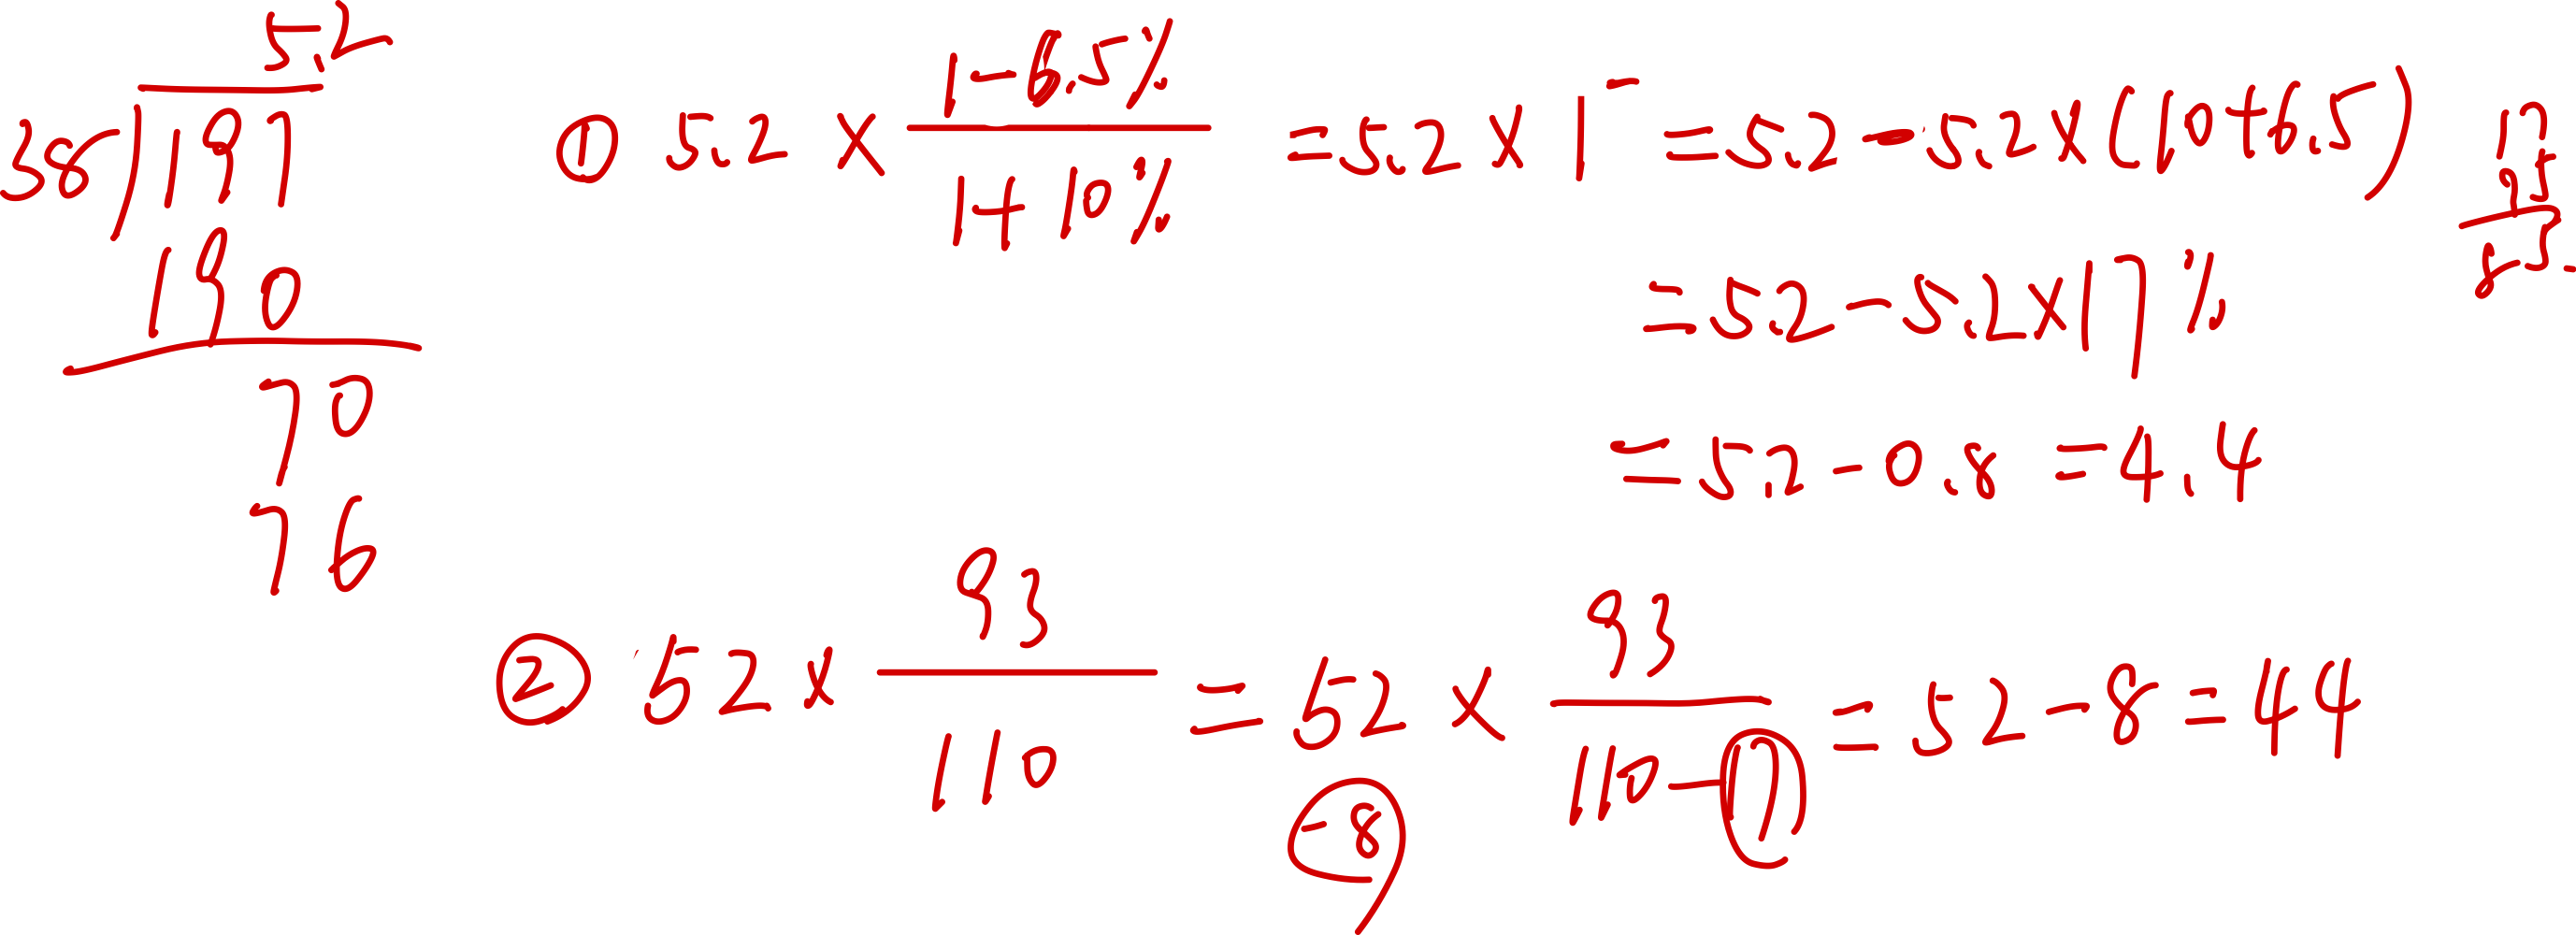 5.2
38)197
190
70
76
① 5.2 × (1-6.5%)/(1+10%) = 5.2 × 1⁻ = 5.2 - 5.2 × (10+6.5)
= 5.2 - 5.2 × 17%
= 5.2 - 0.8 = 4.4
17
5
85
② 52 × 93/110 = 52 × 93/(110-17) = 52 - 8 = 44
-8